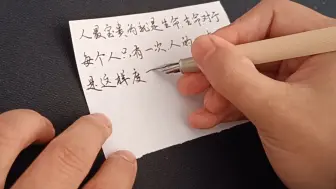 人最宝贵的就是生命生命对于
每个人只有一次人的一
是这样度